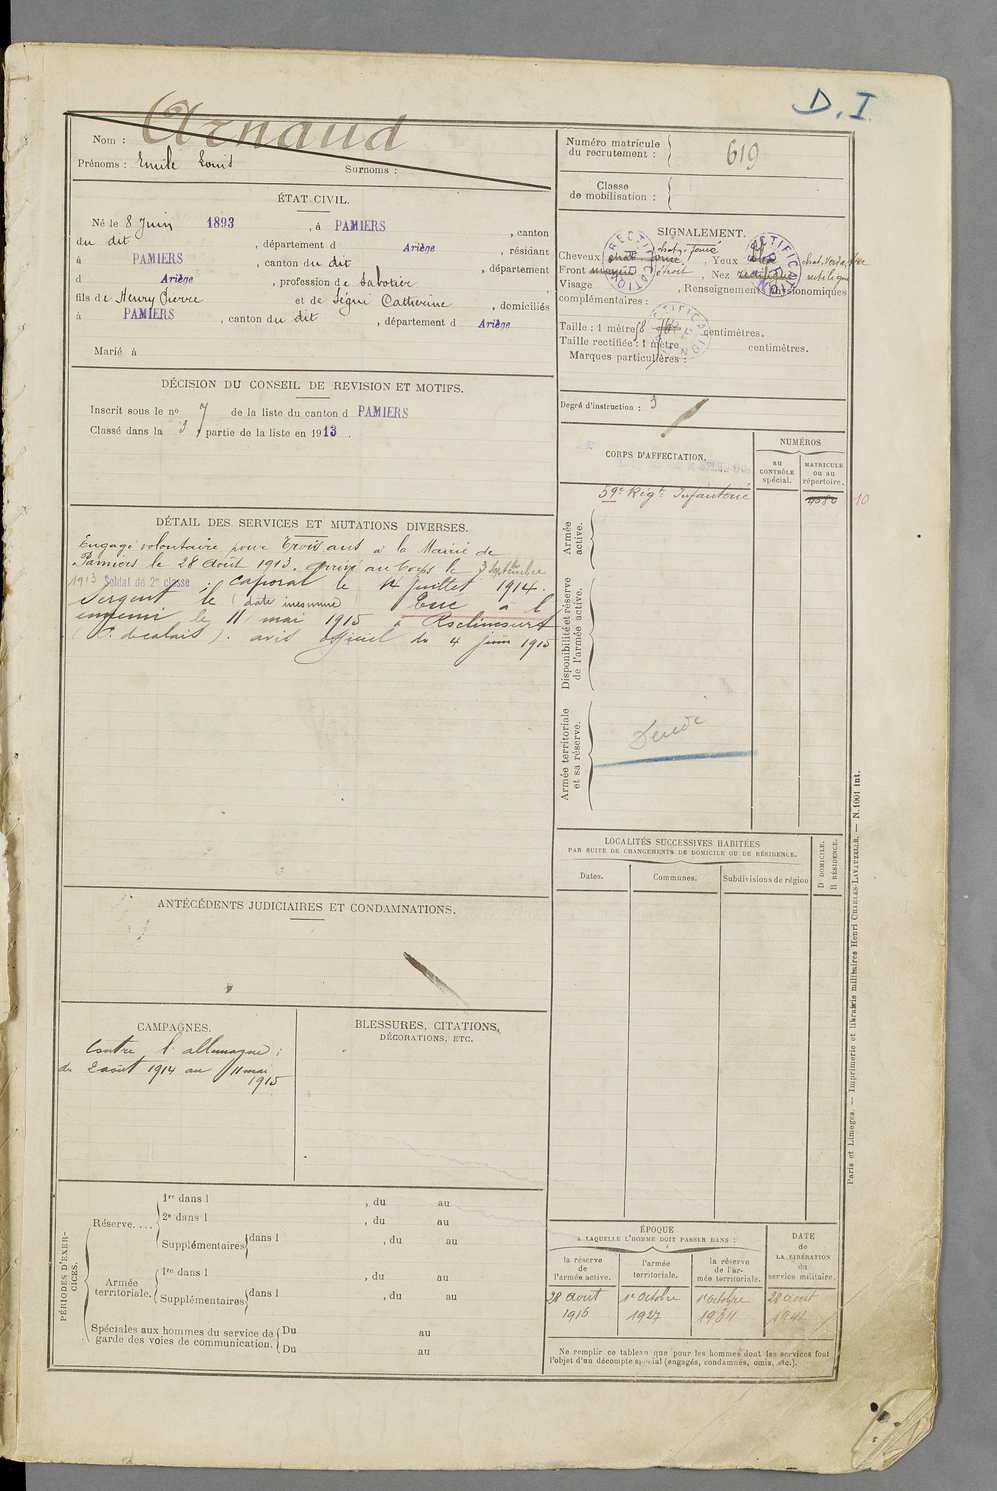 D. I
Nom : Arnaud
Prénoms : Emile Louis Surnoms :
Numéro matricule du recrutement : 619
Classe de mobilisation :
ÉTAT CIVIL.
Né le 8 Juin 1893, à PAMIERS, canton
du dit, département d Ariège, résidant
à PAMIERS, canton du dit, département
d Ariège, profession de Sabotier
fils de Henry Pierre et de Ségui Catherine, domiciliés
à PAMIERS, canton du dit, département d Ariège
Marié à
SIGNALEMENT.
chat. foncé
Cheveux chat. foncé, Yeux chat. verdatre
Front moyen étroit, Nez rectiligne
Visage , Renseignements physionomiques
complémentaires :
RECTIFICATION
RECTIFICATION
RECTIFICATION
Taille : 1 mètre 58 centimètres.
Taille rectifiée : 1 mètre centimètres.
Marques particulières :
Degré d'instruction : 3
DÉCISION DU CONSEIL DE REVISION ET MOTIFS.
Inscrit sous le no 7 de la liste du canton d PAMIERS
Classé dans la 3 partie de la liste en 1913.
DÉTAIL DES SERVICES ET MUTATIONS DIVERSES.
Engagé volontaire pour trois ans à la Mairie de
Pamiers le 28 Août 1913. arrivé au Corps le 3 Septembre
1913 Soldat de 2e classe ; caporal le 14 Juillet 1914.
Sergent le (date inconnue) Tué à l'
ennemi le 11 mai 1915 à Rsclincourt
(P. de calais). avis officiel du 4 juin 1915
CORPS D'AFFECTATION.
NUMÉROS
au CONTRÔLE spécial.
MATRICULE ou au répertoire.
59e Régt Infanterie 4080 10
Armée active.
Disponibilité et réserve de l'armée active.
Armée territoriale et sa réserve.
LOCALITÉS SUCCESSIVES HABITÉES
PAR SUITE DE CHANGEMENTS DE DOMICILE OU DE RÉSIDENCE.
Dates.
Communes.
Subdivisions de région
D DOMICILE.
R RÉSIDENCE.
ANTÉCÉDENTS JUDICIAIRES ET CONDAMNATIONS.
CAMPAGNES.
Contre l'allemagne :
du 2 août 1914 au 11 mai
1915
BLESSURES, CITATIONS,
DÉCORATIONS, ETC.
PÉRIODES D'EXERCICES.
Réserve....
1re dans l , du au
2e dans l , du au
Supplémentaires dans l , du au
Armée territoriale.
1re dans l , du au
Supplémentaires dans l , du au
Spéciales aux hommes du service de garde des voies de communication.
Du au
Du au
ÉPOQUE
A LAQUELLE L'HOMME DOIT PASSER DANS :
la réserve de l'armée active.
l'armée territoriale.
la réserve de l'armée territoriale.
DATE de LA LIBÉRATION du service militaire.
28 Août 1916
1er Octobre 1927
1er Octobre 1934
28 Août
Ne remplir ce tableau que pour les hommes dont les services font
l'objet d'un décompte spécial (engagés, condamnés, omis, etc.).
Paris et Limoges. — Imprimerie et librairie militaires Henri CHARLES-LAVAUZELLE. — N. 1001 int.